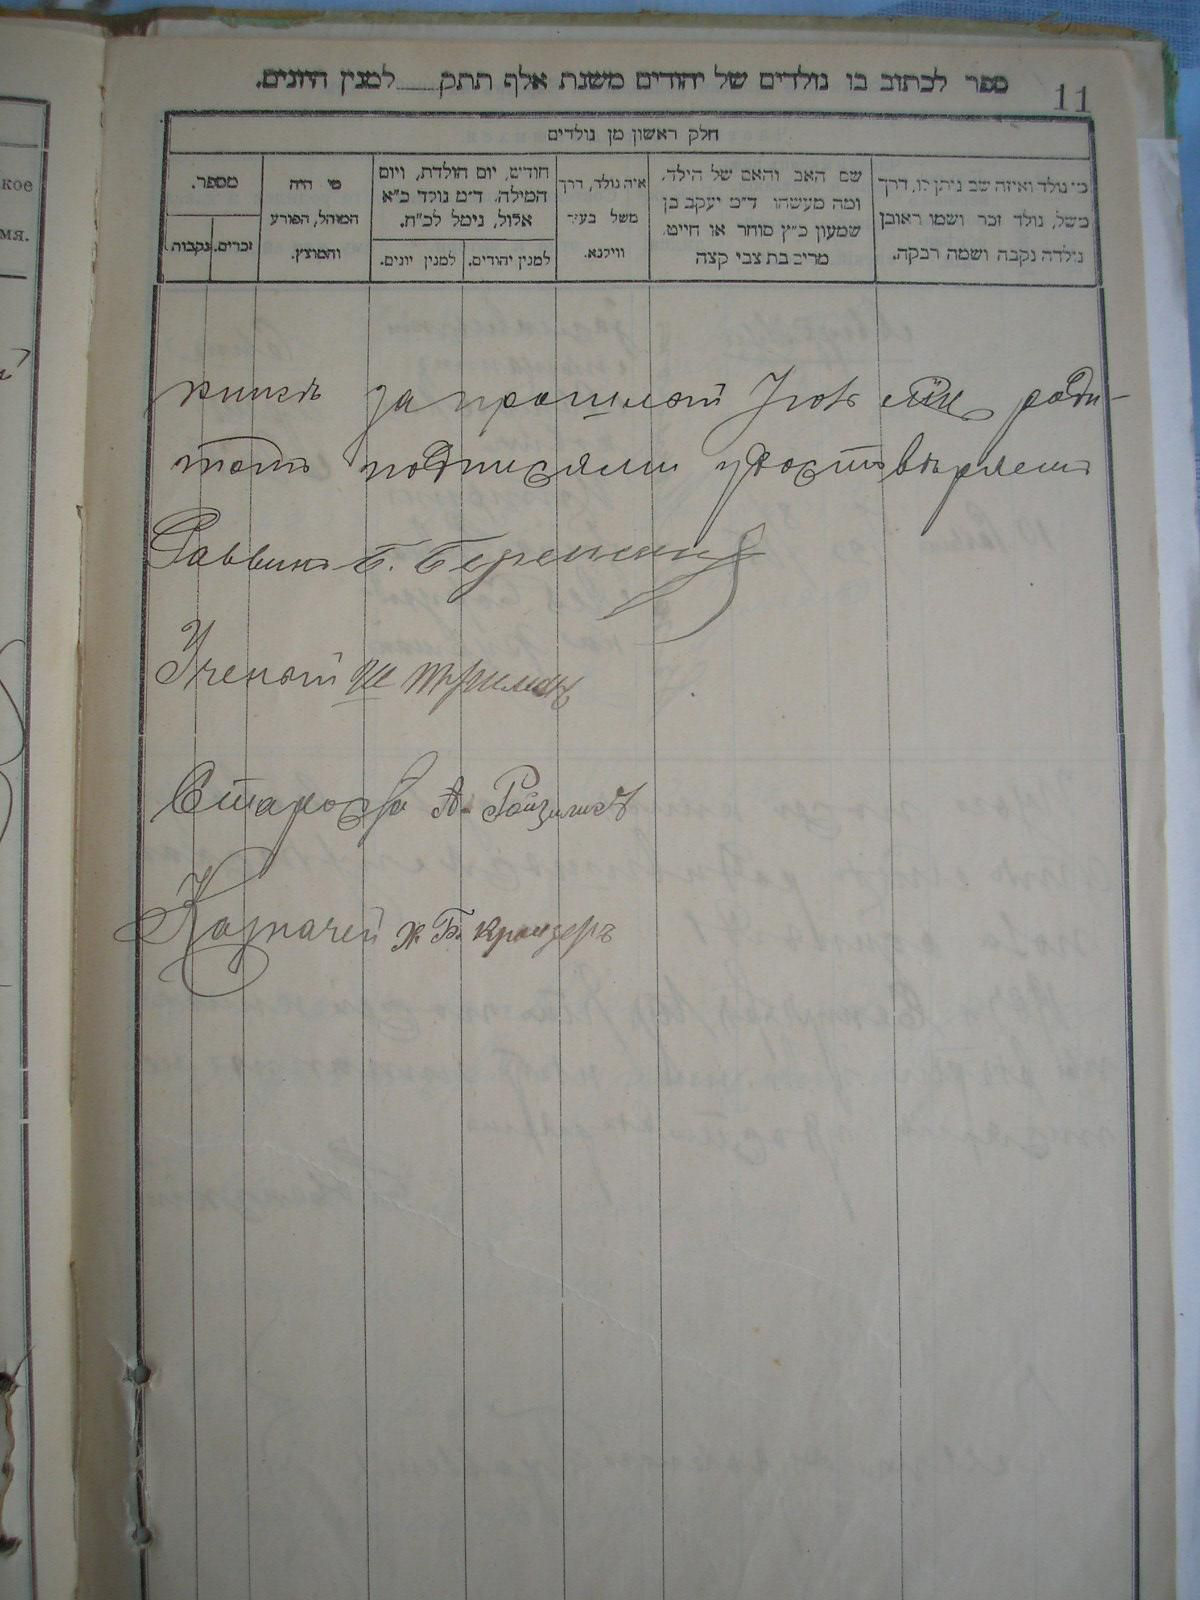 ספר לכתוב בו נולדים של יהודים משנת אלף תתק למנין היונים.
11
חלק ראשון מן נולדים
מי נולד ואיזה שם ניתן לו, דרך
משל, נולד זכר ושמו ראובן
נולדה נקבה ושמה רבקה.
שם האב והאם של הילד,
ומה מעשהו ד״מ יעקב בן
שמעון כ״ץ סוחר או חייט,
מרים בת צבי קצה
איה נולד, דרך
משל בעיר
ווילנא.
חודש, יום הולדת, ויום
המילה, ד״מ נולד כ״א
אלול, נימל לכ״ח.
למנין יהודים.
למנין יונים.
מי היה
המוהל, הפורע
והמוצץ.
מספר.
זכרים.
נקבות.
кое
мя.
за прошлой
подписями удостовѣряемъ
Раввинъ Б.
Ученый Ш
Староста А.
Казначей